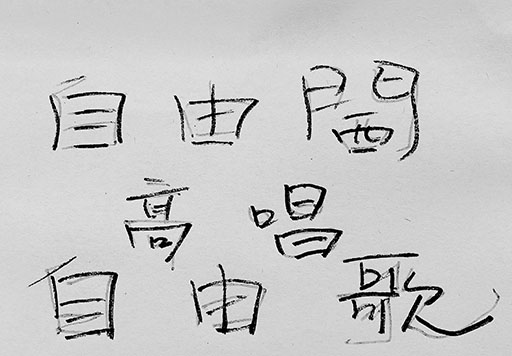 自由閪
高唱
自由歌